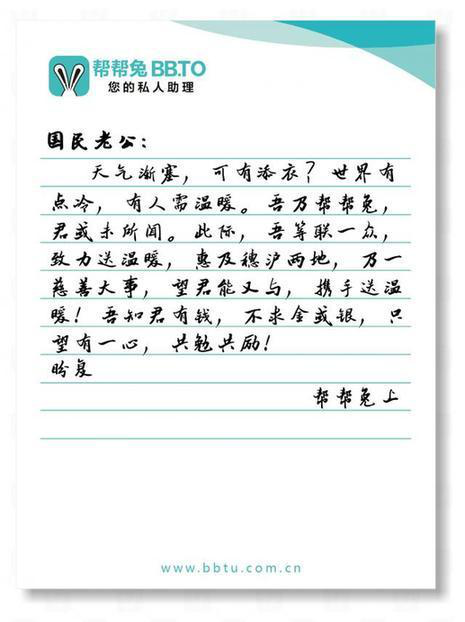 帮帮兔 BB.TO
您的私人助理
国民老公：
天气渐塞，可有添衣？世界有
点冷，有人需温暖。吾乃帮帮兔，
君或未所闻。此际，吾等联一众，
致力送温暖，惠及穗沪两地，乃一
慈善大事，望君能又与，携手送温
暖！吾知君有钱，不求金或银，只
望有一心，共勉共励！
盼复
帮帮兔上
www.bbtu.com.cn